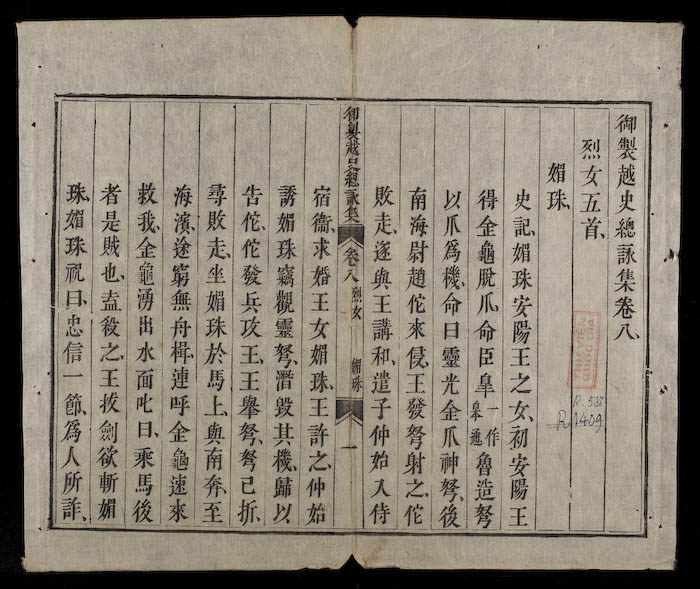 御製越史總詠集卷八
烈女五首
媚珠
史記、媚珠安陽王之女、初安陽王
得金龜脫爪、命臣皐一作皋通魯造弩
以爪爲機、命曰靈光金爪神弩、後
南海尉趙佗來侵、王發弩射之、佗
敗走、遂與王講和、遣子仲始入侍
御製越史總詠集 卷八 烈女 媚珠 一
宿衞、求婚王女媚珠、王許之、仲始
誘媚珠竊觀靈弩、潛毀其機、歸以
告佗、佗發兵攻王、王舉弩、弩已折、
尋敗走、坐媚珠於馬上、與南奔、至
海濱、途窮無舟楫、連呼金龜速來
救我、金龜湧出水面叱曰、乘馬後
者是賊也、盍殺之、王拔劍欲斬媚
珠、媚珠祝曰、忠信一節、爲人所詐、
THƯ VIỆN
QUỐC GIA
R. 582
R.1409